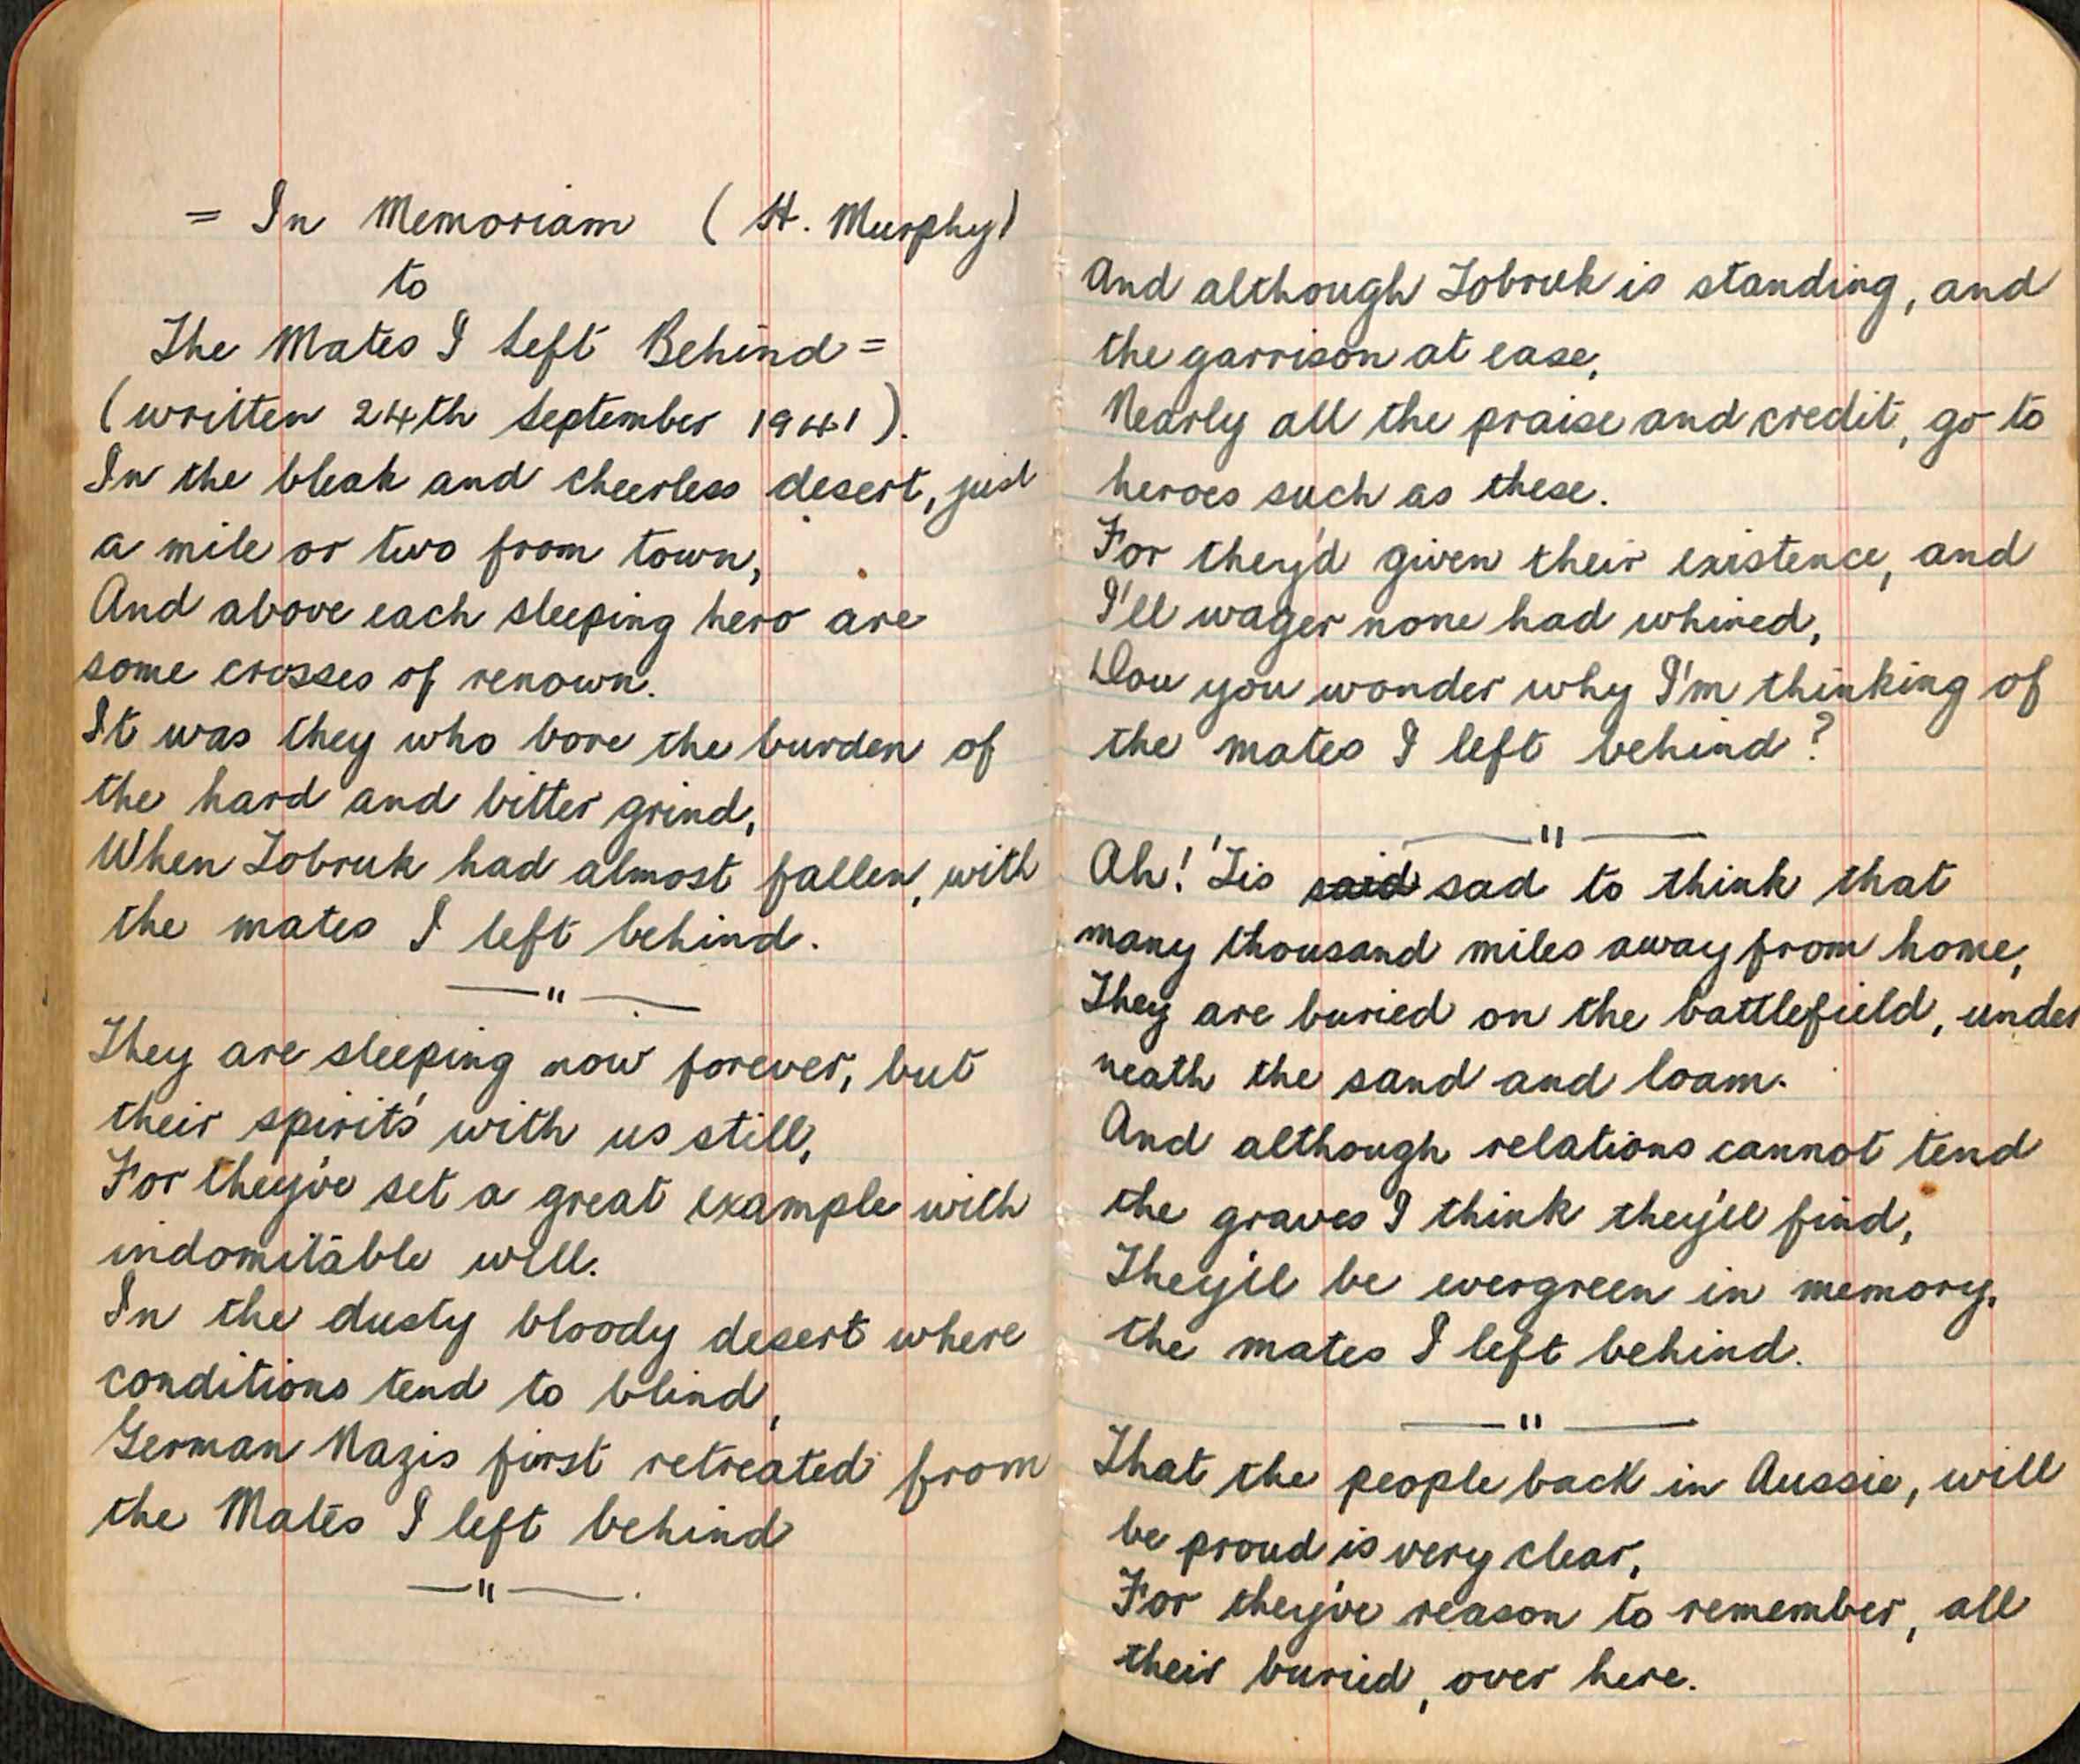 = In Memoriam ( H. Murphy)
to
The Mates I Left Behind =
(written 24th September 1941).
In the bleak and cheerless desert, just
a mile or two from town,
And above each sleeping hero are
some crosses of renown.
It was they who bore the burden of
the hard and bitter grind,
When Tobruk had almost fallen, with
the mates I left behind.
— " —
They are sleeping now forever, but
their spirit's with us still,
For they've set a great example with
indomitable will.
In the dusty bloody desert where
conditions tend to blind,
German Nazis first retreated from
the Mates I left behind
— " —
And although Tobruk is standing, and
the garrison at ease,
Nearly all the praise and credit, go to
heroes such as these.
For they'd given their existence, and
I'll wager none had whined,
Dou you wonder why I'm thinking of
the mates I left behind?
— " —
Ah! 'Tis said sad to think that
many thousand miles away from home,
They are buried on the battlefield, under
neath the sand and loam.
And although relations cannot tend
the graves I think they'll find,
They'll be evergreen in memory,
the mates I left behind.
— " —
That the people back in Aussie, will
be proud is very clear,
For they've reason to remember, all
their buried, over here.